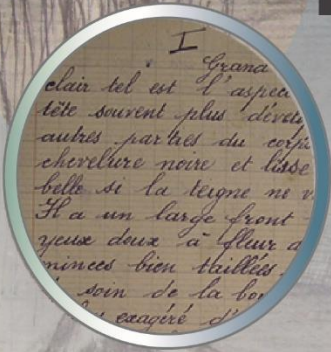 I
Grand
clair tel est l'aspec
tête souvent plus dével
autres parties du corps
chevelure noire et lisse
belle si la teigne ne v
Il a un large front
yeux doux à fleur d
minces bien taillées
soin de la bo
exagéré d'